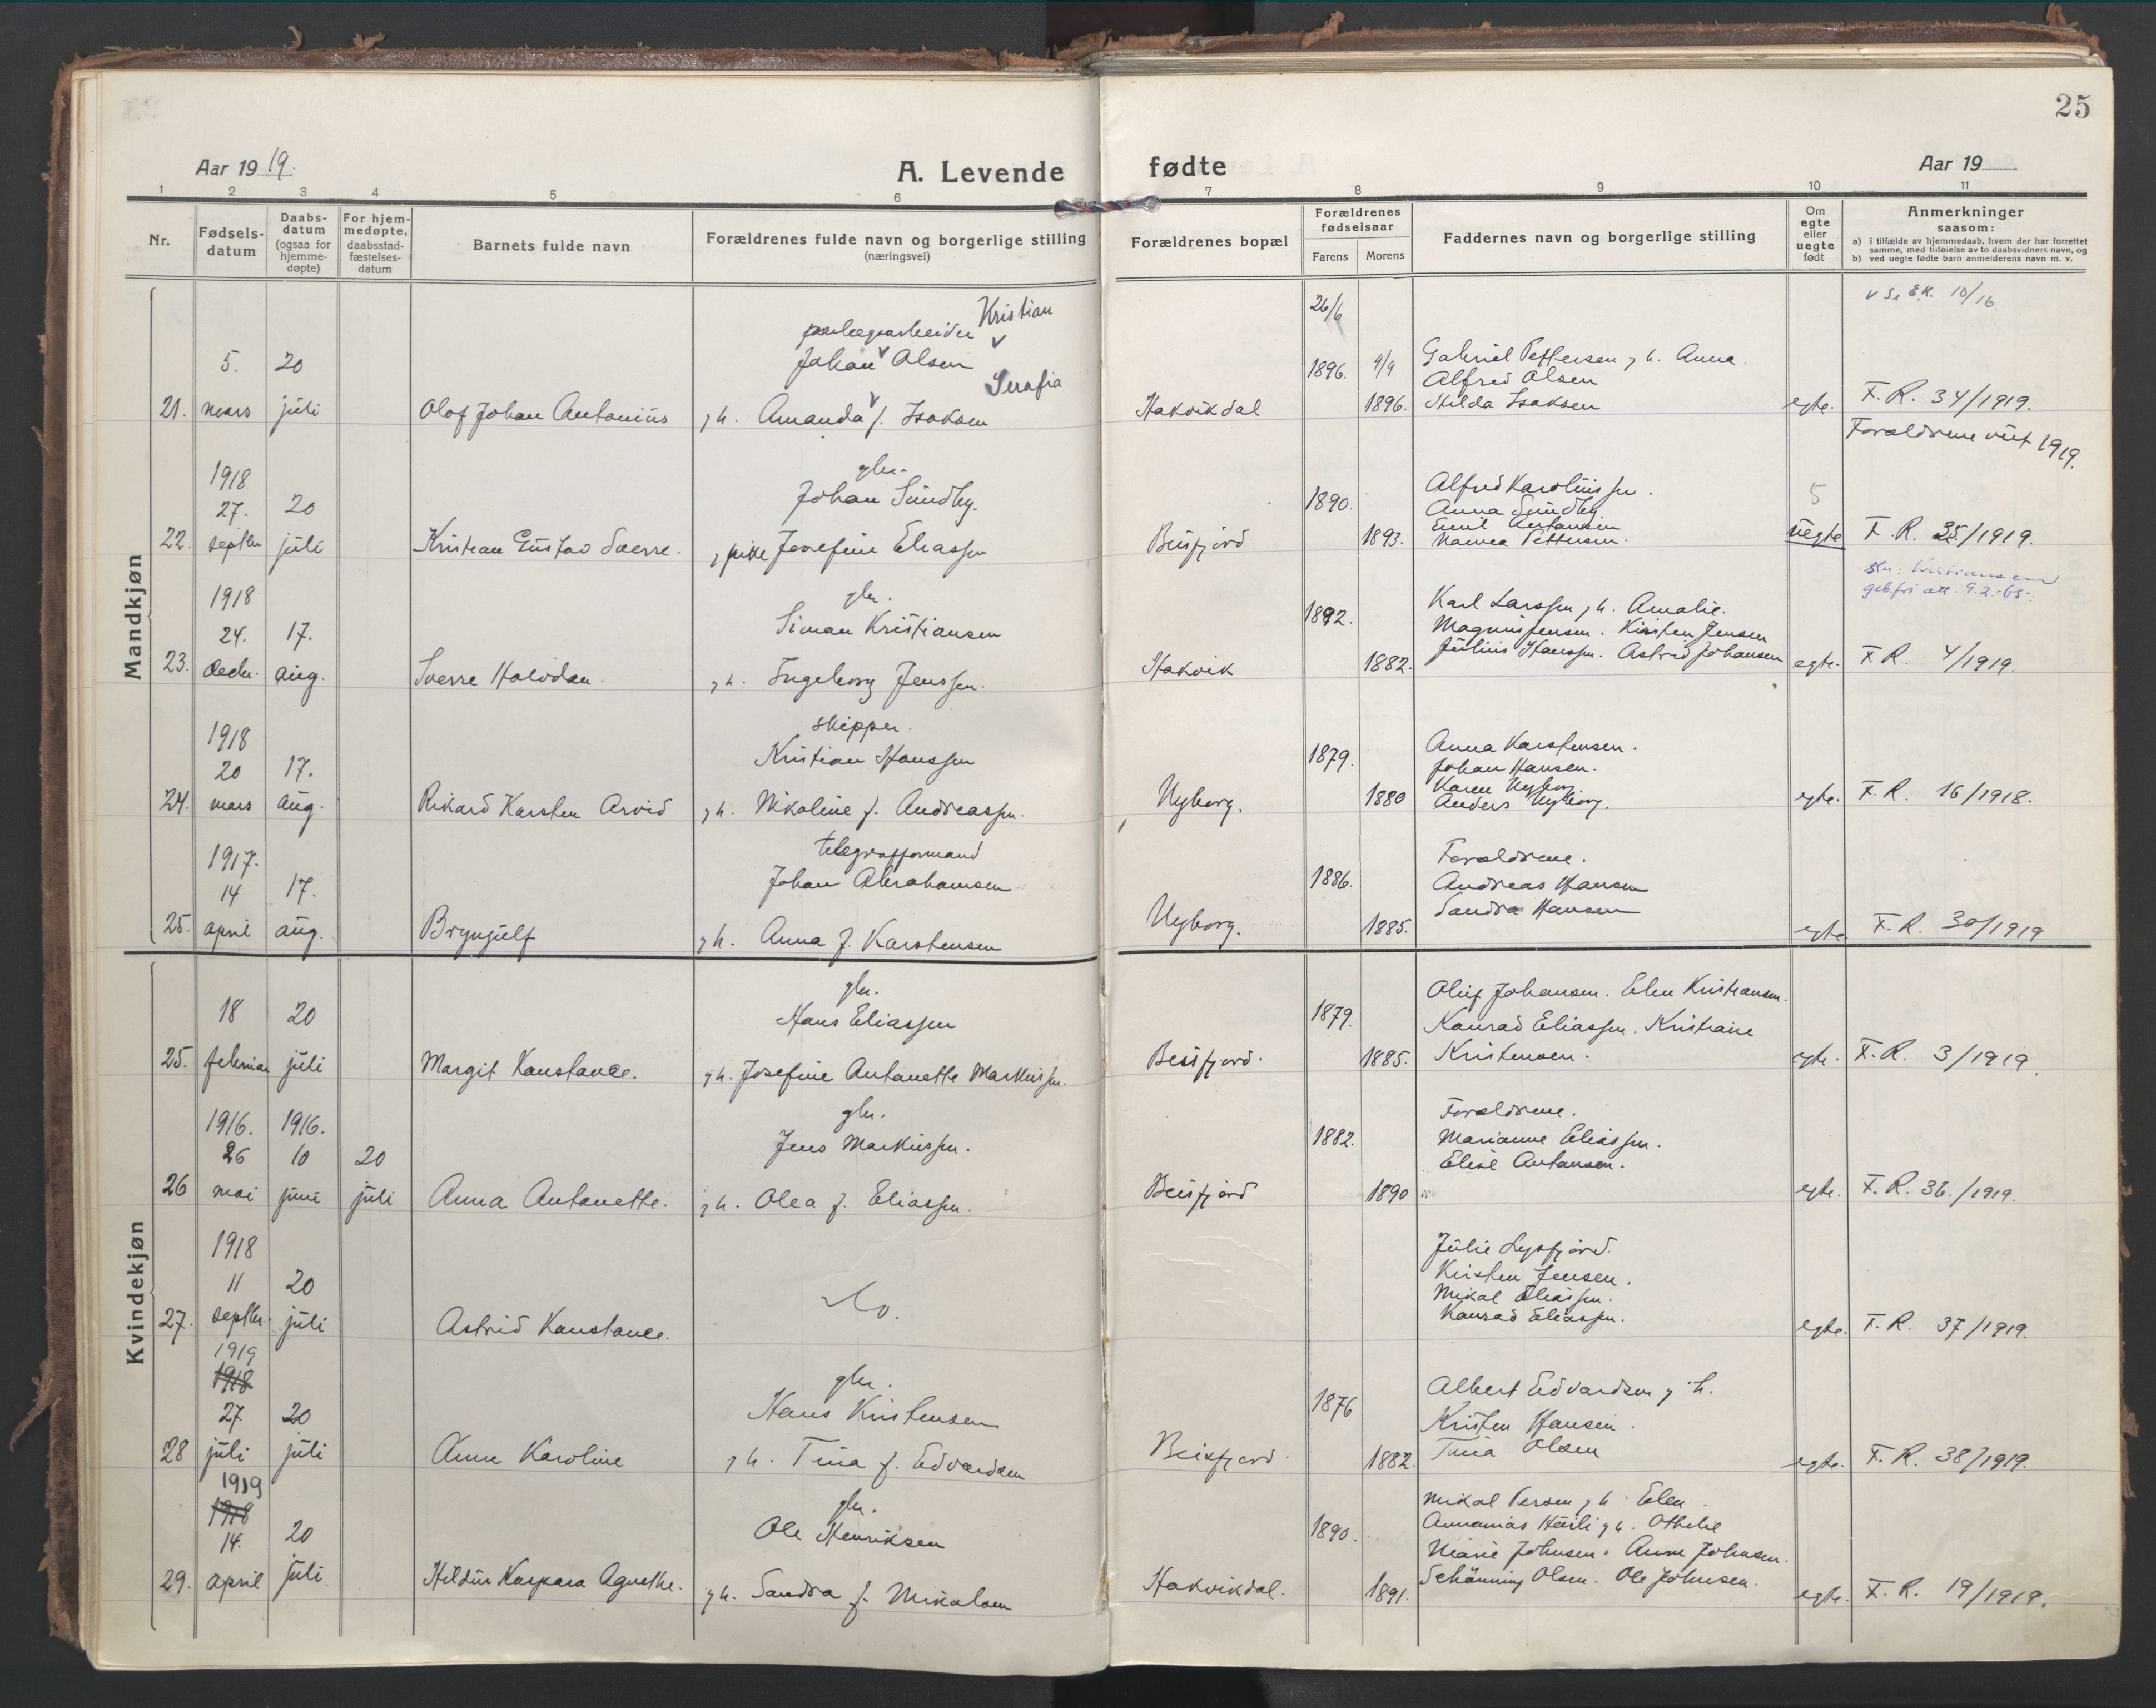 25
Aar 1919.
A. Levende fødte
Aar 19
1 2 3 4 5 6 7 8 9 10 11
Nr.
Fødsels-
datum
Daabs-
datum
(ogsaa for
hjemme-
døpte)
For hjem-
medøpte,
daabsstad-
fæstelses-
datum
Barnets fulde navn
Forældrenes fulde navn og borgerlige stilling
(næringsvei)
Forældrenes bopæl
Forældrenes
fødselsaar
Farens Morens
Faddernes navn og borgerlige stilling
Om
egte
eller
uegte
født
Anmerkninger
saasom:
a) i tilfælde av hjemmedaab, hvem der har forrettet
samme, med tilføielse av to daabsvidners navn, og
b) ved uegte fødte barn anmelderens navn m. v.
Mandkjøn
26/6 10/16
Kristian
5. 20 Johan Olsen 1896. 4/9 Gabriel Pettersen g h. Anna.
Serafia Alfred Olsen
21. mars juli Olof Johan Antonius g h. Amanda f. Isaksen Hakvikdal 1896. Hilda Isaksen egte. F. R. 34/1919.
Forældrene viet 1919.
1918 gbr.
27. 20 Johan Sundby. 1890. Alfred Karoliussen.
Anna Sundby
Emil Antonsen 5
22. septbr juli Kristian Gustav Sverre. g pike Josefine Eliassen Beisfjord 1893. Pettersen. uegte F. R. 35/1919.
1918 gbr.
24. 17. Simon Kristiansen 1892. Karl Larssen g h. Amalie.
Magnus Jensen. Kirsten Jensen
23. decbr. aug. Sverre Halvdan. g h. Ingeborg Jenssen. Hakvik 1882. Julius Hanssen. Astrid Johansen egte. F. R. 4/1919.
1918 skipper.
20 17. Kristian Hanssen 1879. Anna Karstensen.
Johan Hansen.
Karen Nyborg.
24. mars aug. Rikard Karsten Arvid g h. Nikoline f. Andreassen. Nyborg. 1880 Anders Nyborg. egte. F. R. 16/1918.
1917. telegrafformand
14 17. Johan Abrahamsen 1886. Forældrene.
Andreas Hansen
Sandra Hansen
25. april aug. Brynjulf g h. Anna f. Karstensen Nyborg. 1885. egte F. R. 30/1919
Kvindekjøn
gbr.
18 20 Hans Eliassen 1879. Oluf Johansen. Elen Kristiansen.
Konrad Eliassen. Kristiane
25. februar juli Margit Konstance. g h. Josefine Antonette Markussen. Beisfjord. 1885. Kristensen. egte. F. R. 3/1919.
1916. 1916. gbr.
26 10 20 Jens Markussen. 1882. Forældrene.
Marianne Eliassen.
Elise Antonsen.
26 mai juni juli Anna Antonette. g h. Olea f. Eliassen. Beisfjord 1890 egte. F. R. 36./1919.
1918 Julie Lysfjord.
11 20 Kirsten Jensen.
Mikal Eliassen.
27. septbr. juli Astrid Konstance. Do. Konrad Eliassen. egte. F. R. 37/1919.
1919
1918 gbr.
27 20 Hans Kristensen 1876 Albert Edvardsen g h.
Kristen Hansen.
28 juli juli Anne Karoline g h. Tina f. Edvardsen Beisfjord. 1882. Tina Olsen egte. F. R. 38/1919.
1919
1918 gbr.
14. 20 Ole Henriksen 1890. Mikal Persen g h. Elen.
Annanias g h. Othelie
Marie Johnsen. Anne Johnsen.
29. april juli Kaspara Agnethe. g h. Sandra f. Mikalsen Hakvikdal. 1891. Schønning Olsen. Ole Johnsen. egte. F. R. 19/1919.